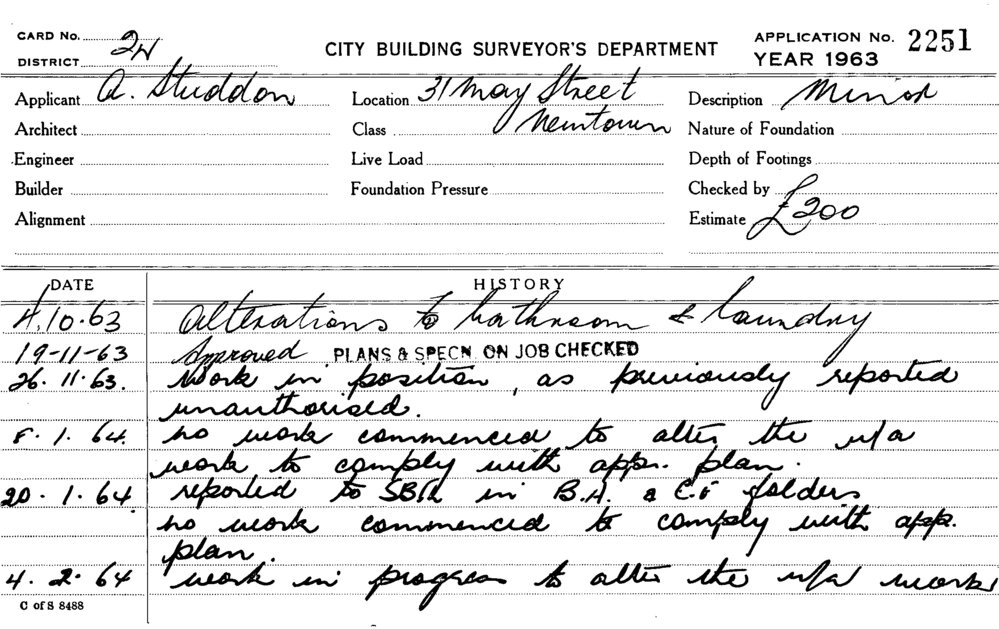 CARD No. 2W
DISTRICT
CITY BUILDING SURVEYOR'S DEPARTMENT
APPLICATION No. 2251
YEAR 1963
Applicant A. Studdon Location 31 May Street Description Minor
Architect Class Newtown Nature of Foundation
Engineer Live Load Depth of Footings
Builder Foundation Pressure Checked by
Alignment Estimate £200
DATE HISTORY
4.10.63 Alterations to bathroom & laundry
19-11-63 Approved PLANS & SPECN. ON JOB CHECKED
26.11.63. Work in position, as previously reported
unauthorised.
8.1.64. no work commenced to alter the u/a
work to comply with app. plan.
20.1.64 reported to in B.A. & folders
no work commenced to comply with app.
plan.
4.2.64 work in progress to alter the u/a work
C of S 8488